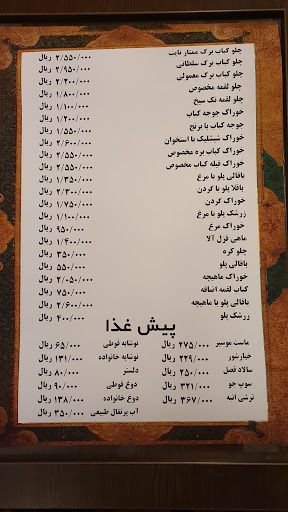 چلو کباب برگ ممتاز نایب ۲/۵۵۰/۰۰۰ ریال
چلو کباب برگ سلطانی ۲/۹۵۰/۰۰۰ ریال
چلو کباب برگ معمولی ۲/۲۰۰/۰۰۰ ریال
چلو لقمه مخصوص ۱/۸۰۰/۰۰۰ ریال
چلو لقمه تک سیخ ۱/۱۰۰/۰۰۰ ریال
خوراک جوجه کباب ۱/۲۰۰/۰۰۰ ریال
جوجه کباب با برنج ۱/۵۵۰/۰۰۰ ریال
خوراک شیشلیک با استخوان ۲/۶۰۰/۰۰۰ ریال
خوراک کباب بره مخصوص ۲/۵۵۰/۰۰۰ ریال
خوراک فیله کباب مخصوص ۲/۵۵۰/۰۰۰ ریال
باقالی پلو با مرغ ۱/۳۵۰/۰۰۰ ریال
باقلا پلو با گردن ۲/۳۰۰/۰۰۰ ریال
خوراک گردن ۱/۷۵۰/۰۰۰ ریال
زرشک پلو با مرغ ۱/۱۰۰/۰۰۰ ریال
خوراک مرغ ۹۵۰/۰۰۰ ریال
ماهی قزل آلا ۱/۴۰۰/۰۰۰ ریال
چلو کره ۳۵۰/۰۰۰ ریال
باقالی پلو ۵۵۰/۰۰۰ ریال
خوراک ماهیچه ۲/۰۵۰/۰۰۰ ریال
کباب لقمه اضافه ۷۵۰/۰۰۰ ریال
باقالی پلو با ماهیچه ۲/۶۰۰/۰۰۰ ریال
زرشک پلو ۴۰۰/۰۰۰ ریال
پیش غذا
ماست موسیر ۲۷۵/۰۰۰ ریال
خیارشور ۲۲۹/۰۰۰ ریال
سالاد فصل ۲۵۰/۰۰۰ ریال
سوپ جو ۳۲۱/۰۰۰ ریال
ترشی انبه ۳۶۷/۰۰۰ ریال
نوشابه قوطی ۶۵/۰۰۰ ریال
نوشابه خانواده ۱۳۱/۰۰۰ ریال
دلستر ۸۰/۰۰۰ ریال
دوغ قوطی ۹۰/۰۰۰ ریال
دوغ خانواده ۱۳۸/۰۰۰ ریال
آب پرتقال طبیعی ۳۵۰/۰۰۰ ریال